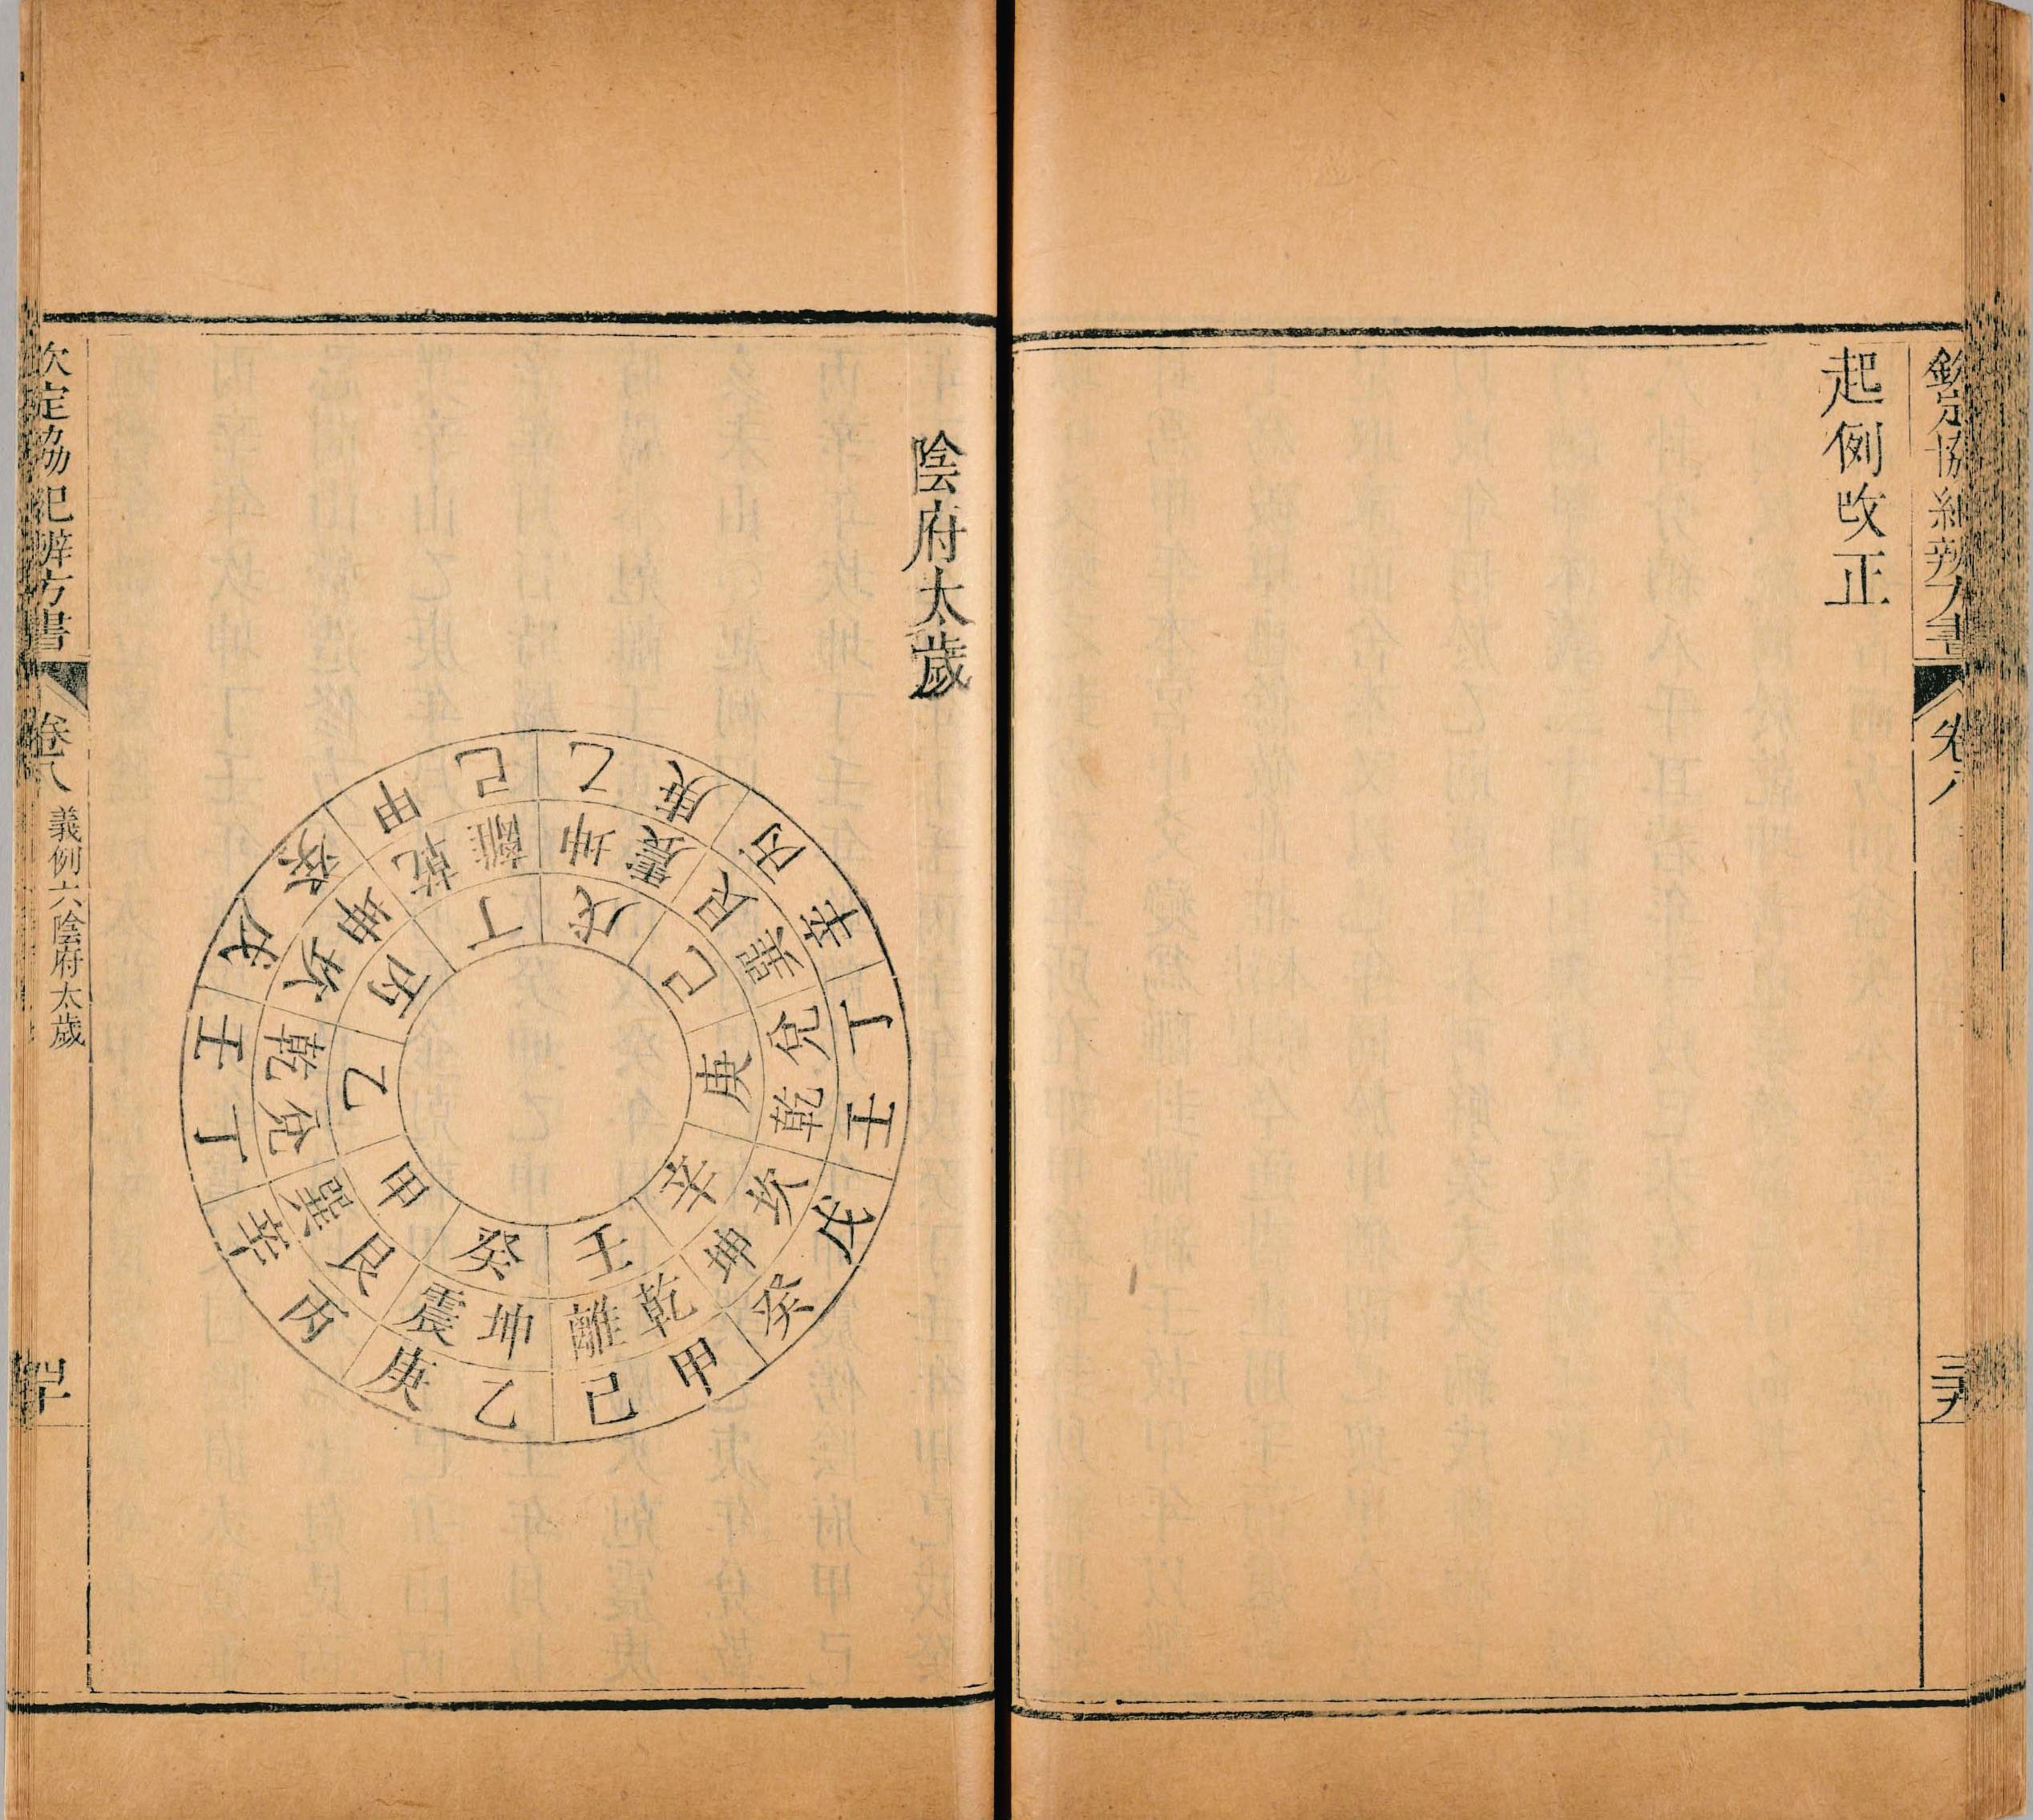 欽定協紀辨方書
卷八
三十九
起例改正
陰府太歲
甲乙丙丁戊己庚辛壬癸
艮巽兌乾坎坤乾離坤震艮巽兌乾坎坤乾離坤震
丙辛丁壬戊癸甲己乙庚丙辛丁壬戊癸甲己乙庚
欽定協紀辨方書
卷八
義例六陰府太歲
四十